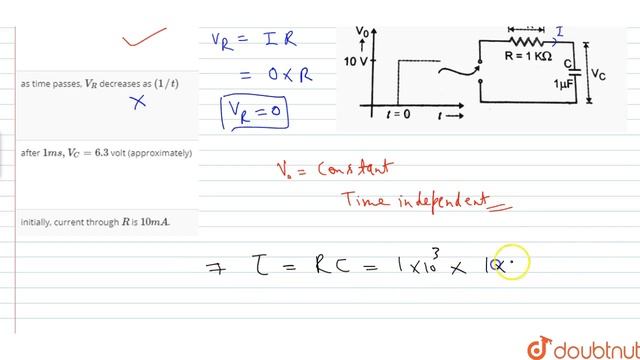 as time passes, V_R decreases as (1/t)
×
after 1ms, V_C = 6.3 volt (approximately)
initially, current through R is 10mA.
V_R = I R
= 0 × R
V_R = 0
V_0
10 V
t = 0
t
R
I
R = 1 KΩ
C
1μF
V_C
V_0 = Constant
Time independent
⇒ τ = RC = 1 × 10^3 × 10×
doubtnut